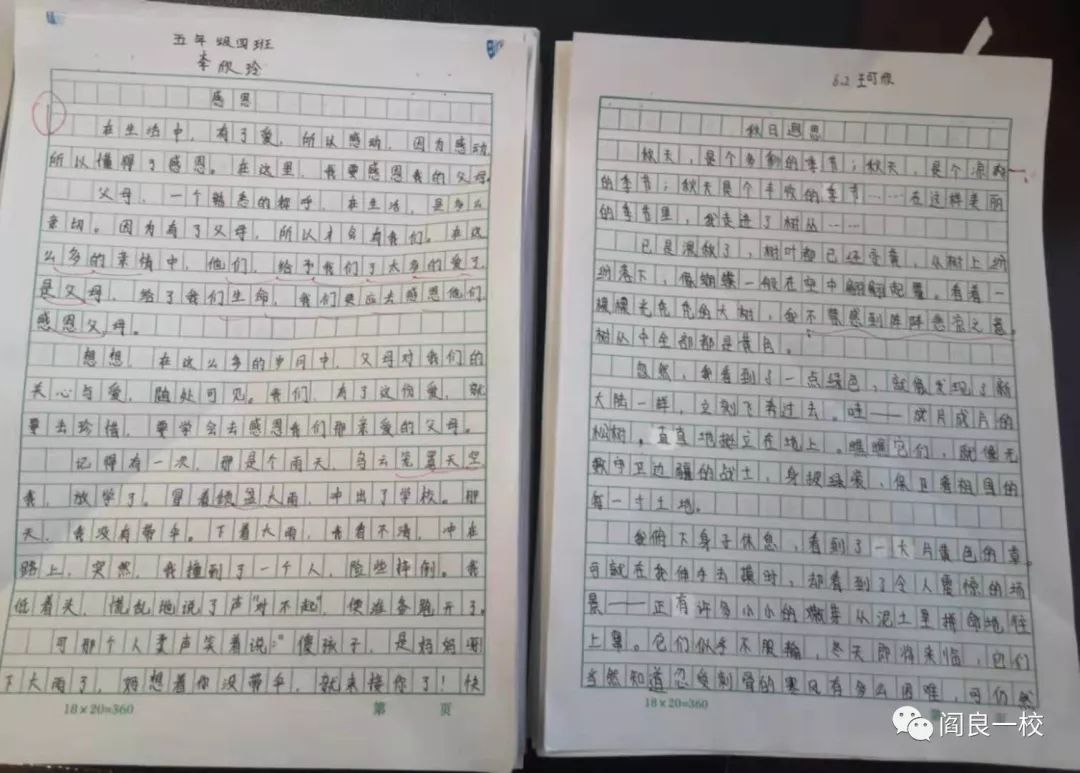 五年级四班
李欣玲
感恩
在生活中，有了爱，所以感动，因为感动，
所以懂得了感恩。在这里，我要感恩我的父母。
父母，一个熟悉的称呼，在生活，是多么
亲切。因为有了父母，所以才会有我们。在这
么多的亲情中，他们，给予我们了太多的爱了，
是父母，给了我们生命，我们更应去感恩他们，
感恩父母。
想想，在这么多的时间中，父母对我们的
关心与爱，随处可见。我们，有了这份爱，就
要去珍惜，要学会去感恩我们那亲爱的父母。
记得有一次，那是个雨天，乌云笼罩天空
我，放学了。冒着倾盆大雨，冲出了学校。那
天，我没有带伞。下着大雨，我看不清，冲在
路上，突然，我撞到了一个人，险些摔倒。我
低着头，慌乱地说了声“对不起”，便准备跑开了。
可那个人柔声笑着说：“傻孩子，是妈妈呀
下大雨了，妈想着你没带伞，就来接你了！快
18×20=360
第 页
6.2 王可欣
秋日遐思
秋天，是个多彩的季节；秋天，是个凉爽
的季节；秋天是个丰收的季节……在这样美丽
的季节里，我走进了树丛……
已是深秋了，树叶都已经变黄，从树上纷
纷落下，像蝴蝶一般在空中翩翩起舞。看着一
棵棵光秃秃的大树，我不禁感到阵阵悲哀之意。
树丛中全部都是黄色。
忽然，我看到了一点绿色，就像发现了新
大陆一样，立刻飞奔过去。哇——成片成片的
松树，直直地挺立在地上。瞧瞧它们，就像无
数守卫边疆的战士，身披绿装，保卫着祖国的
每一寸土地。
我俯下身子休息，看到了一大片黄色的草。
可就在我伸手去摸时，却看到了令人震惊的场
景——正有许多小小的嫩芽从泥土里拼命地往
上冒。它们似乎不服输，冬天即将来临，它们
当然知道忍受刺骨的寒风有多么困难，可仍然
18×20=360
第 页
阎良一校